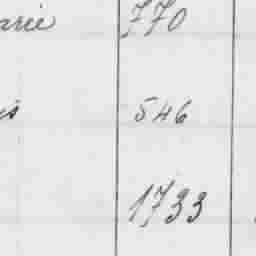 arie 770
s 546
1733